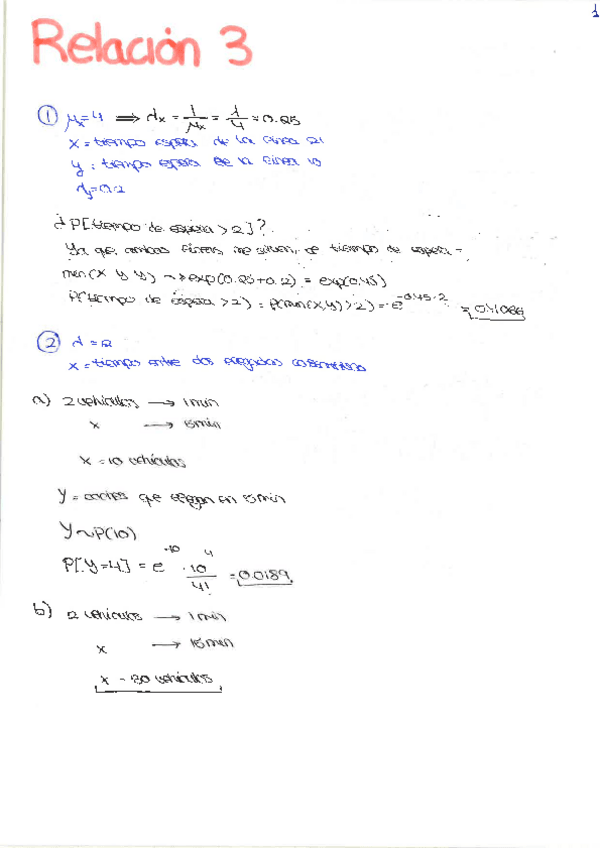 1
Relación 3
① μx=4 ⟹ λx = 1/μx = 1/4 = 0.25
x = tiempo espera de la línea 21
y : tiempo espera de la línea 10
λy=0.2
¿P[tiempo de espera > 2]?
Ya que ambas líneas me sirven, el tiempo de espera =
min(X y Y) ~> exp(0.25+0.2) = exp(0.45)
P(tiempo de espera >2) = P(min(X,Y)>2) = e^-0.45·2 = 0.4066
② λ = 2
x = tiempo entre dos llegadas
a) 2 vehículos → 1 min
x → 5 min
x = 10 vehículos
Y = coches que llegan en 5 min
Y ~ P(10)
P[Y=4] = e^-10 · 10^4/4! = 0.0189
b) 2 vehículos → 1 min
x → 15 min
x = 30 vehículos